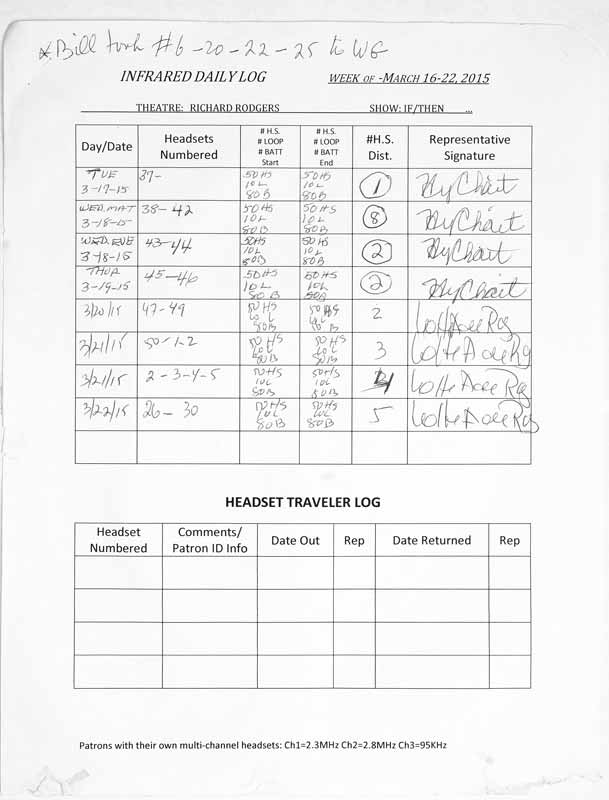 *Bill took #6-20-22-25 to WG
INFRARED DAILY LOG WEEK OF -MARCH 16-22, 2015
THEATRE: RICHARD RODGERS SHOW: IF/THEN ...
Day/Date Headsets Numbered # H.S. # LOOP # BATT Start # H.S. # LOOP # BATT End #H.S. Dist. Representative Signature
TUE 3-17-15 37- 50HS 10L 80B 50HS 10L 80B 1
WED. MAT 3-18-15 38-42 50HS 10L 80B 50HS 10L 80B 8
WED. EVE 3-18-15 43-44 50HS 10L 80B 50HS 10L 80B 2
THUR 3-19-15 45-46 50HS 10L 80B 50HS 10L 2
3/20/15 47-49 50HS 10L 80B 50HS 10L 80B 2
3/21/15 50-1-2 50H/S 10L 80B 50HS 10L 80B 3
3/21/15 2-3-4-5 50H/S 10L 80B 50HS 10L 80B
3/22/15 26-30 50H/S 10L 80B 50HS 10L 80B 5
HEADSET TRAVELER LOG
Headset Numbered Comments/ Patron ID Info Date Out Rep Date Returned Rep
Patrons with their own multi-channel headsets: Ch1=2.3MHz Ch2=2.8MHz Ch3=95KHz